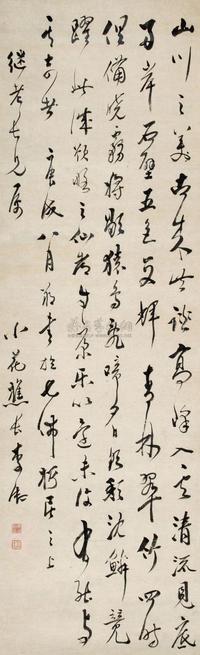 山川之美古来共談高峰入雲清流見底
兩岸石壁五色交輝青林翠竹四時
俱備曉霧將歇猿鳥亂啼夕日欲頹沈鱗競
躍此誠欲界之仙都自康樂以還未復有能與
其奇者 庚戌八月書於居之上
繼老七兄屬 小花樵長李